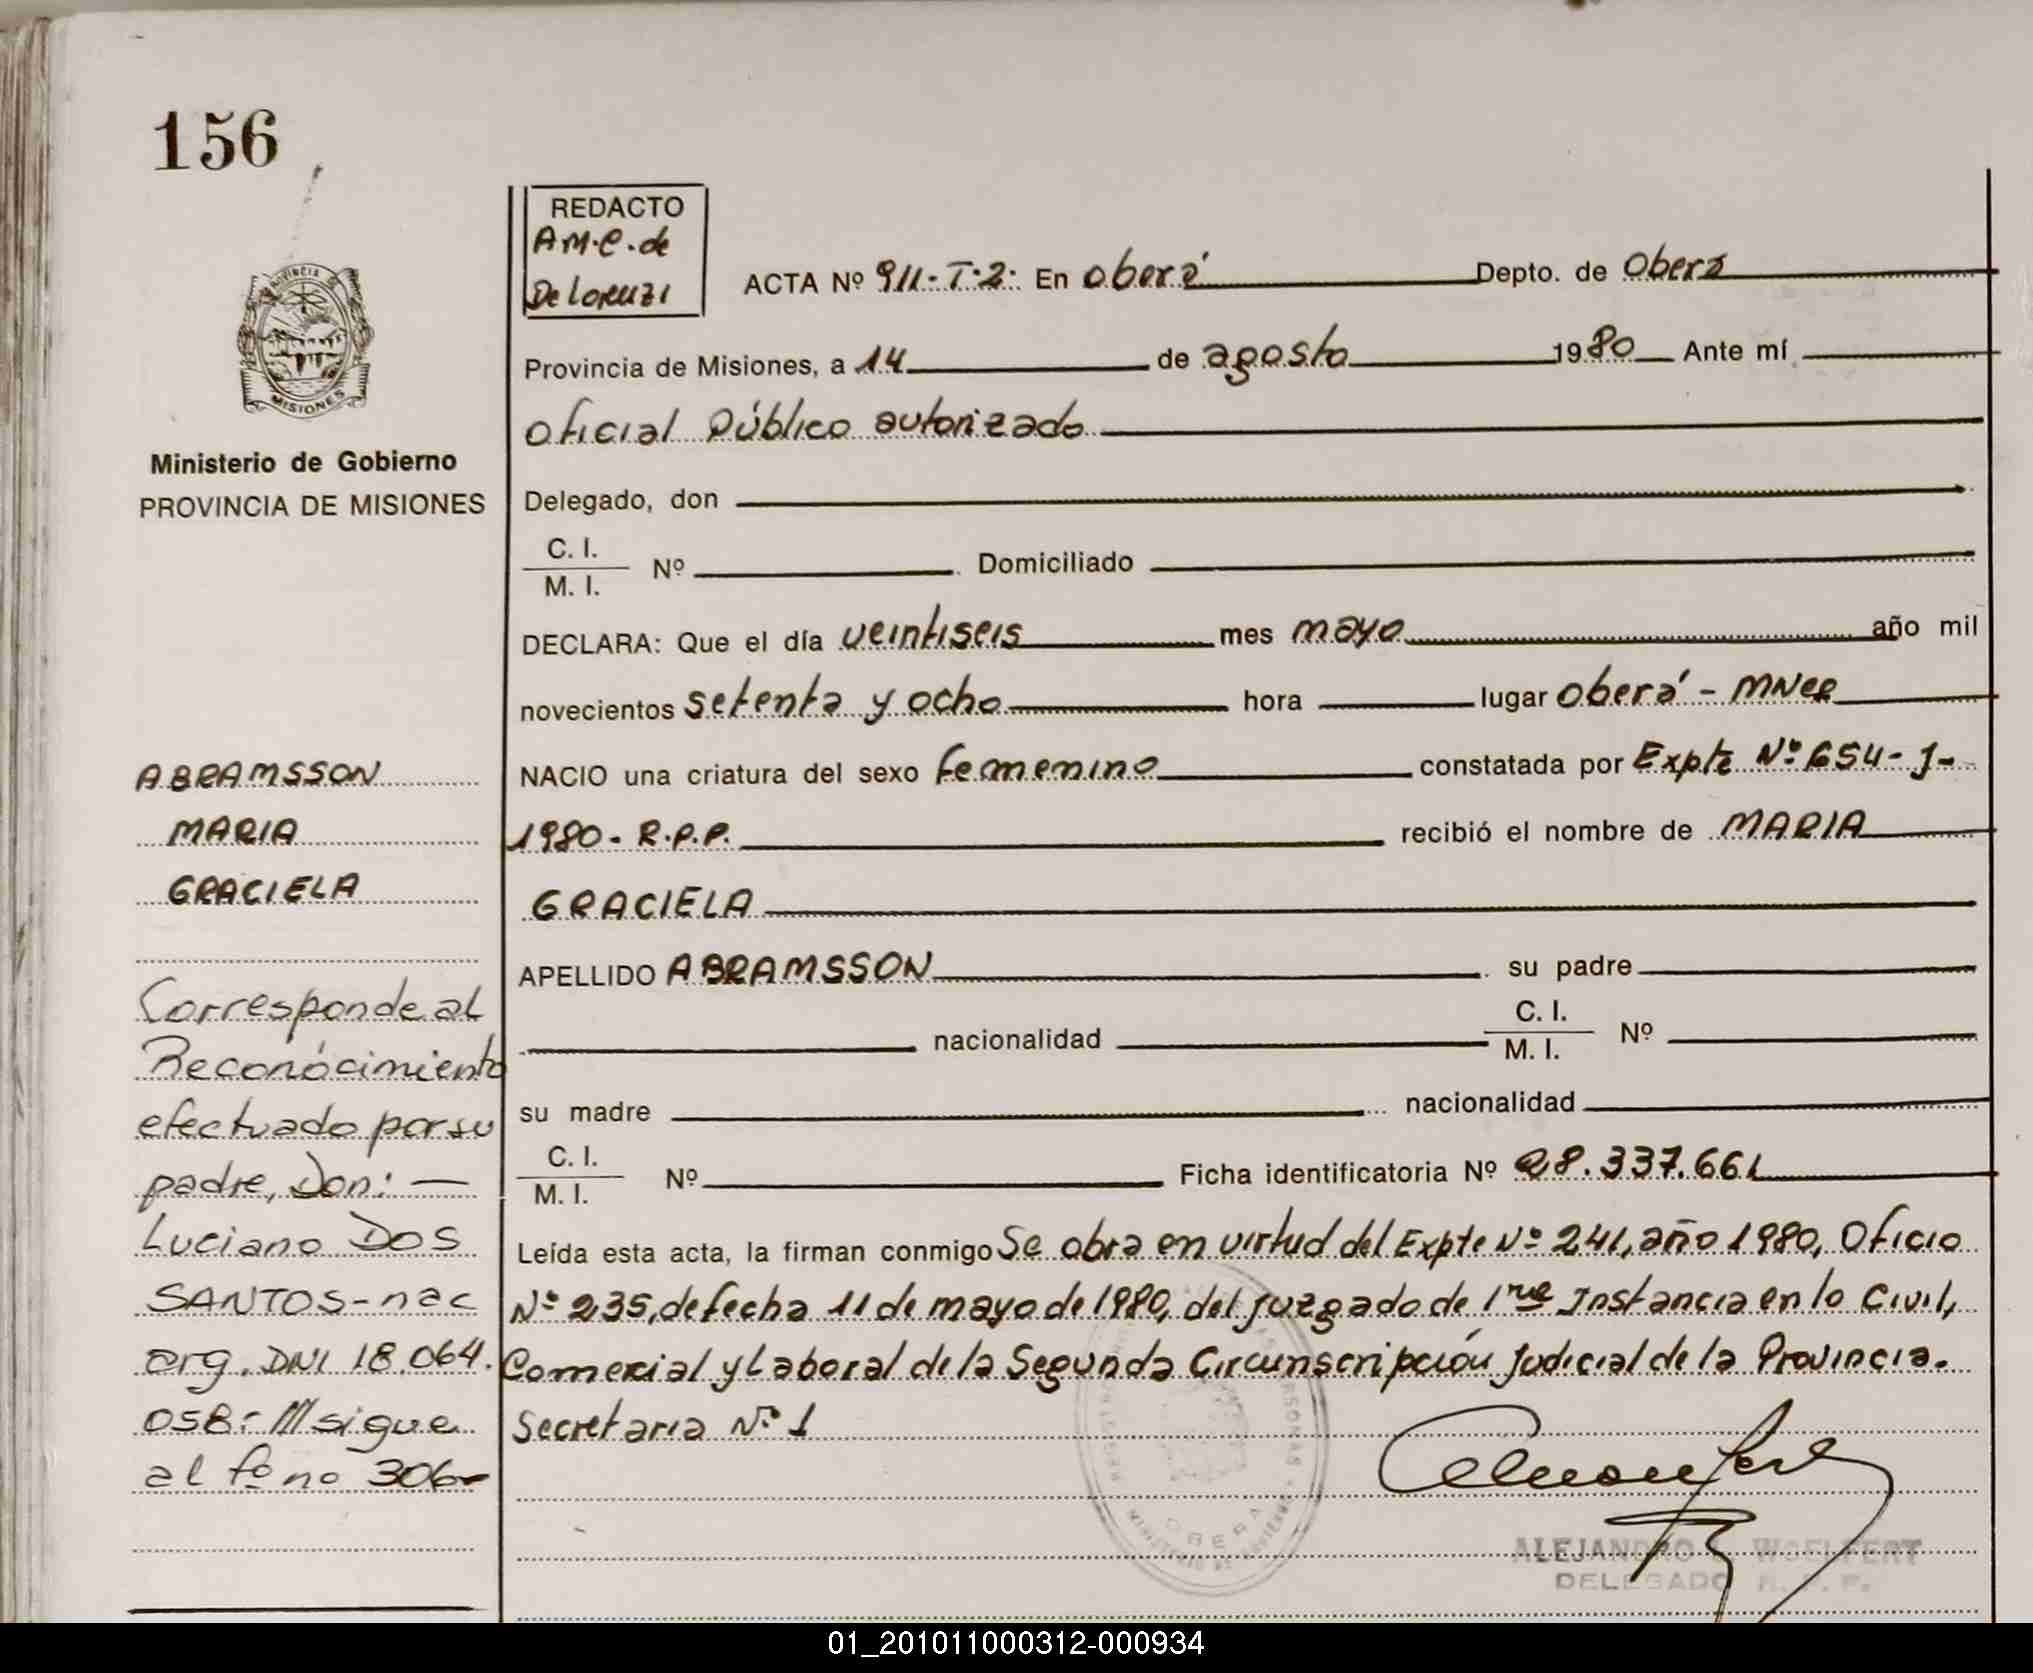 156
REDACTO
A.M.C. de
De Lorenzi
PROVINCIA
MISIONES
Ministerio de Gobierno
PROVINCIA DE MISIONES
ACTA Nº 911-T:2: En Oberá Depto. de Oberá
Provincia de Misiones, a 14 de agosto 1980 Ante mí
Oficial Público autorizado
Delegado, don
C. I.
M. I. Nº Domiciliado
DECLARA: Que el día veintiseis mes mayo año mil
novecientos setenta y ocho hora lugar Oberá - MNes
NACIO una criatura del sexo femenino constatada por Expte Nº 654-J-
1980- R.P.P. recibió el nombre de MARIA
GRACIELA
APELLIDO ABRAMSSON su padre
nacionalidad C. I.
M. I. Nº
su madre nacionalidad
C. I.
M. I. Nº Ficha identificatoria Nº 28.337.661
Leída esta acta, la firman conmigo Se obra en virtud del Expte Nº 241, año 1980, Oficio
Nº 235, de fecha 11 de mayo de 1980, del Juzgado de 1ra Instancia en lo Civil,
Comercial y Laboral de la Segunda Circunscripción Judicial de la Provincia.
Secretaria Nº 1
ABRAMSSON
MARIA
GRACIELA
Corresponde al
Reconocimiento
efectuado por su
padre, Don: —
Luciano DOS
SANTOS-nac
arg. DNI 18.064.
058: /// sigue
al fº no 306-
OBERA
ALEJANDRO WOELFERT
DELEGADO R. P. P.
01_201011000312-000934